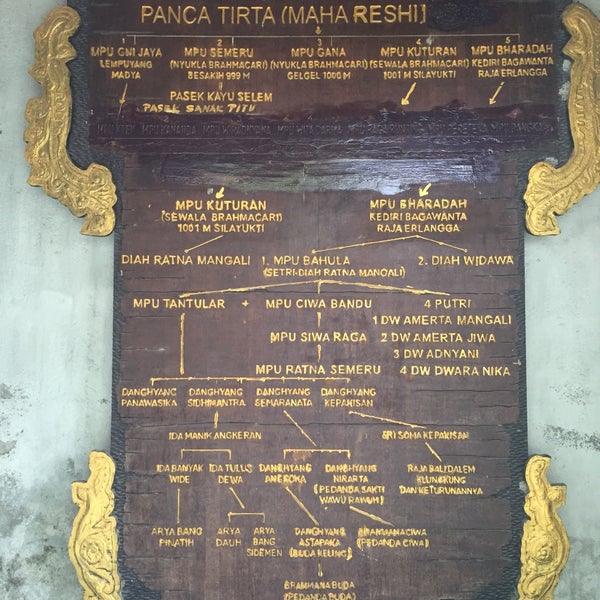 PANCA TIRTA (MAHA RESHI)
1 2 3 4 5
MPU GNI JAYA MPU SEMERU MPU GANA MPU KUTURAN MPU BHARADAH
LEMPUYANG (NYUKLA BRAHMACARI) (NYUKLA BRAHMACARI) (SEWALA BRAHMACARI) KEDIRI BAGAWANTA
MADYA BESAKIH 999 M GELGEL 1000 M 1001 M SILAYUKTI RAJA ERLANGGA
PASEK KAYU SELEM
PASEK SANAK PITU
MPU KETEK MPU KANANDA MPU WIRADNYANA MPU WITADARMA MPU RAGARUNTING MPU PRETEKA MPU DANGKA
MPU KUTURAN MPU BHARADAH
(SEWALA BRAHMACARI) KEDIRI BAGAWANTA
1001 M SILAYUKTI RAJA ERLANGGA
DIAH RATNA MANGALI 1. MPU BAHULA 2. DIAH WIDAWA
(SETRI-DIAH RATNA MANGALI)
MPU TANTULAR + MPU CIWA BANDU 4 PUTRI
1 DW AMERTA MANGALI
MPU SIWA RAGA 2 DW AMERTA JIWA
3 DW ADNYANI
MPU RATNA SEMERU 4 DW DWARA NIKA
DANGHYANG DANGHYANG DANGHYANG DANGHYANG
PANAWASIKA SIDHIMANTRA SEMARANATA KEPAKISAN
IDA MANIK ANGKERAN SRI SOMA KEPAKISAN
IDA BANYAK IDA TULUS DANGHYANG DANGHYANG RAJA BALI/DALEM
WIDE DEWA ANGSOKA NIRARTA KLUNGKUNG
(PEDANDA SAKTI DAN KETURUNANNYA
WAWU RAWUH)
ARYA BANG ARYA ARYA DANGHYANG BRAHMANA CIWA
PINATIH DAUH BANG ASTAPAKA (PEDANDA CIWA)
SIDEMEN (BUDA KELING)
BRAHMANA BUDA
(PEDANDA BUDA)